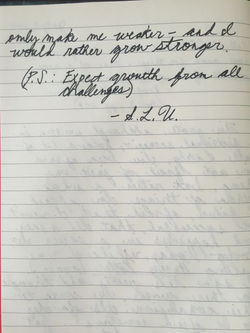 only make me weaker - and I
would rather grow stronger.
(P.S.: Expect growth from all
challenges)
- S.L.U.